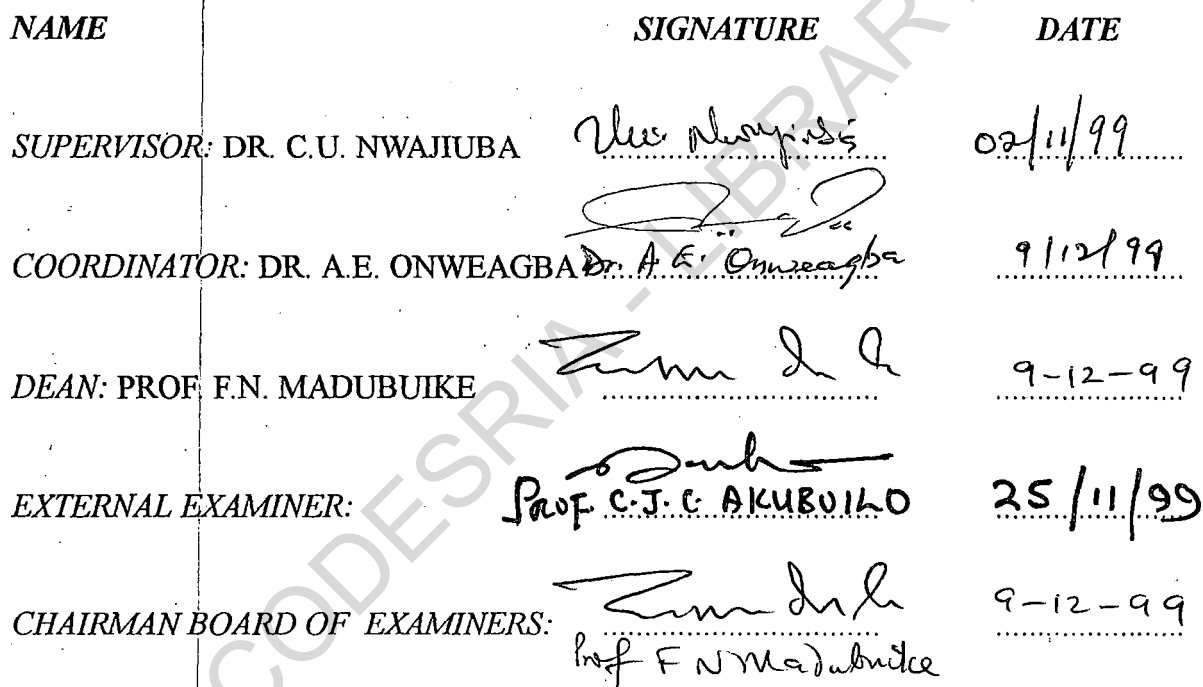 NAME SIGNATURE DATE
SUPERVISOR: DR. C.U. NWAJIUBA 02/11/99
COORDINATOR: DR. A.E. ONWEAGBA Dr. A E. Onweagba 9/12/99
DEAN: PROF. F.N. MADUBUIKE 9-12-99
EXTERNAL EXAMINER: PROF. C.J.C. AKUBUILO 25/11/99
CHAIRMAN BOARD OF EXAMINERS: 9-12-99
Prof F N Madubuike
CODESRIA - LIBRARY